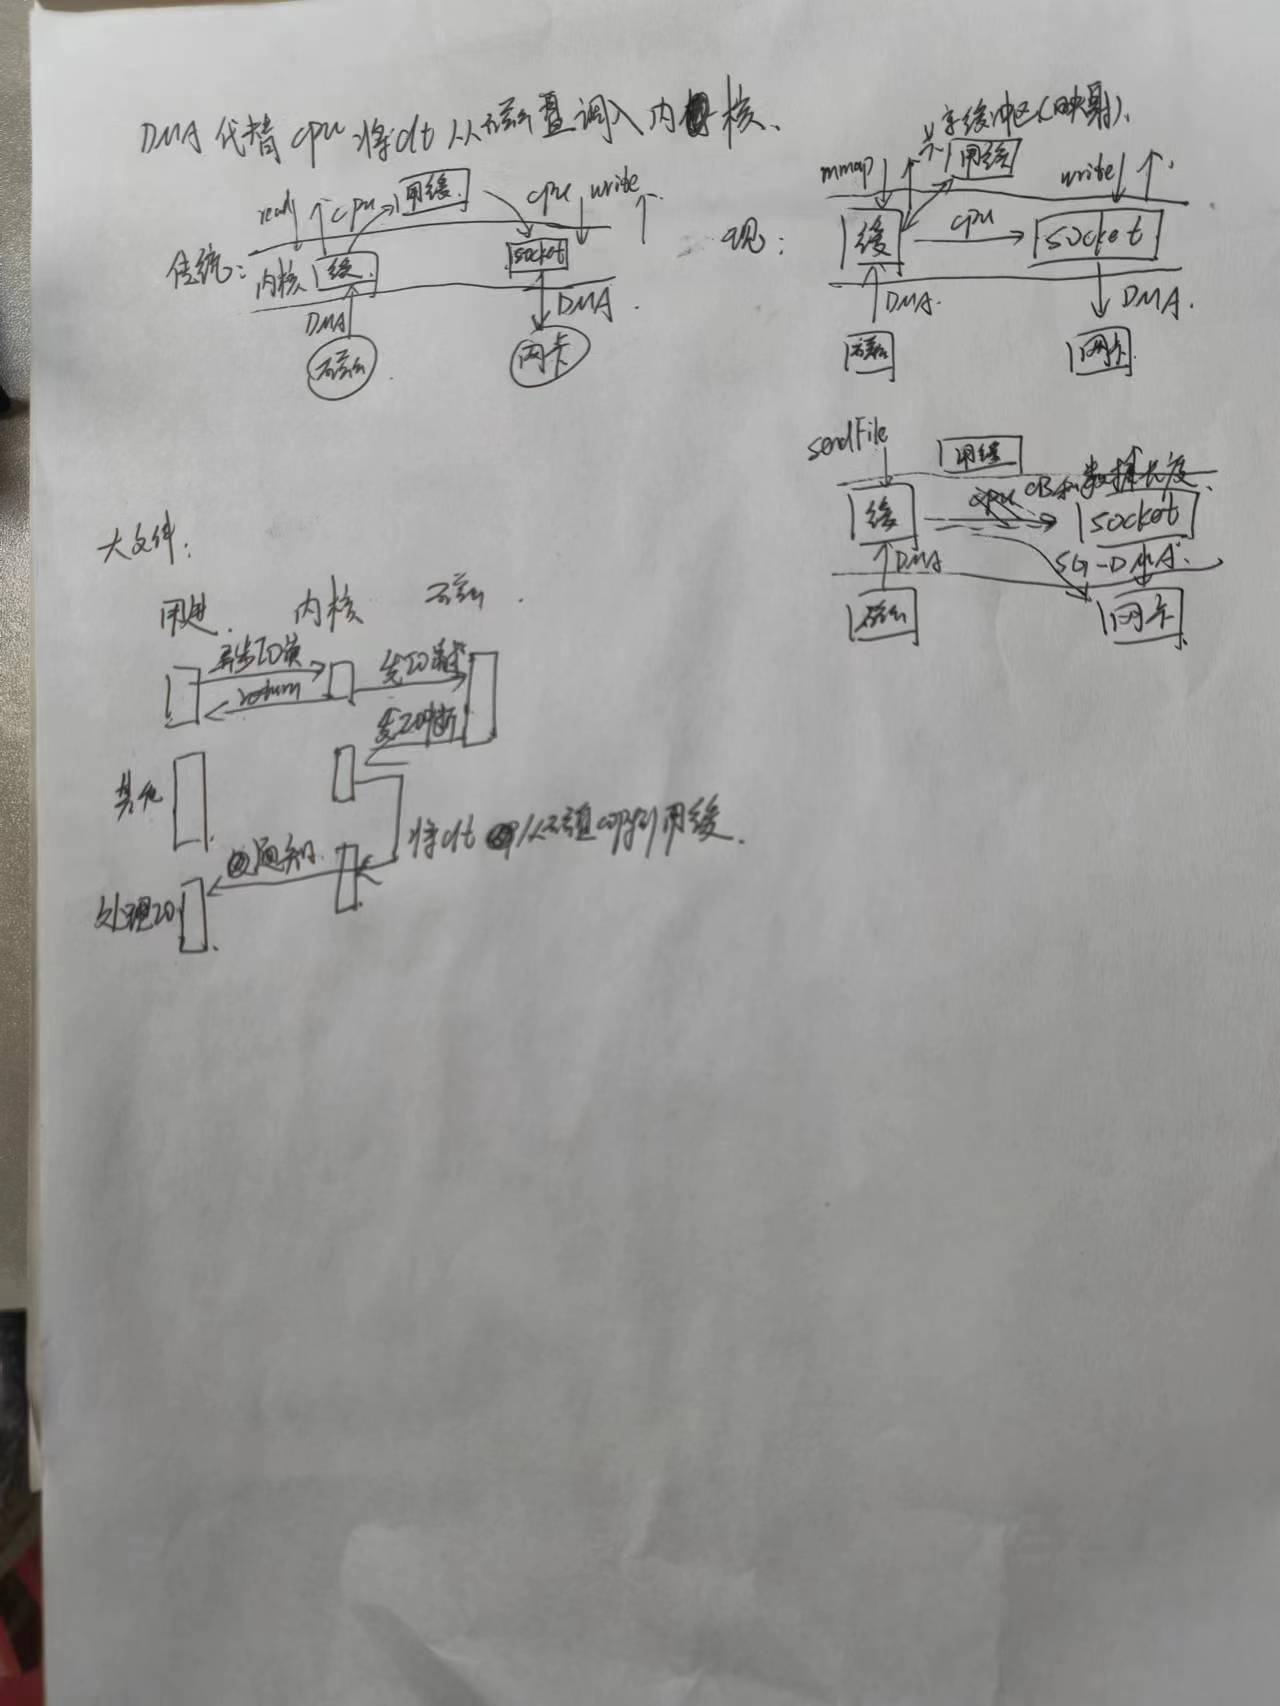 DMA 代替 cpu 将dt 从磁盘调入内核、
传统：
read
cpu
用缓
cpu
write
内核
缓
socket
DMA
DMA
磁盘
网卡
现：
mmap
共享缓冲区(映射)、
用缓
write
缓
cpu
socket
DMA
DMA
磁盘
网卡
sendFile
用缓
cpu
数据长度
缓
socket
DMA
SG-DMA
磁盘
网卡
大文件：
用进
内核
磁盘
异步IO读
return
发IO请求
发IO中断
其他
将dt
从磁盘copy到用缓
通知
处理IO